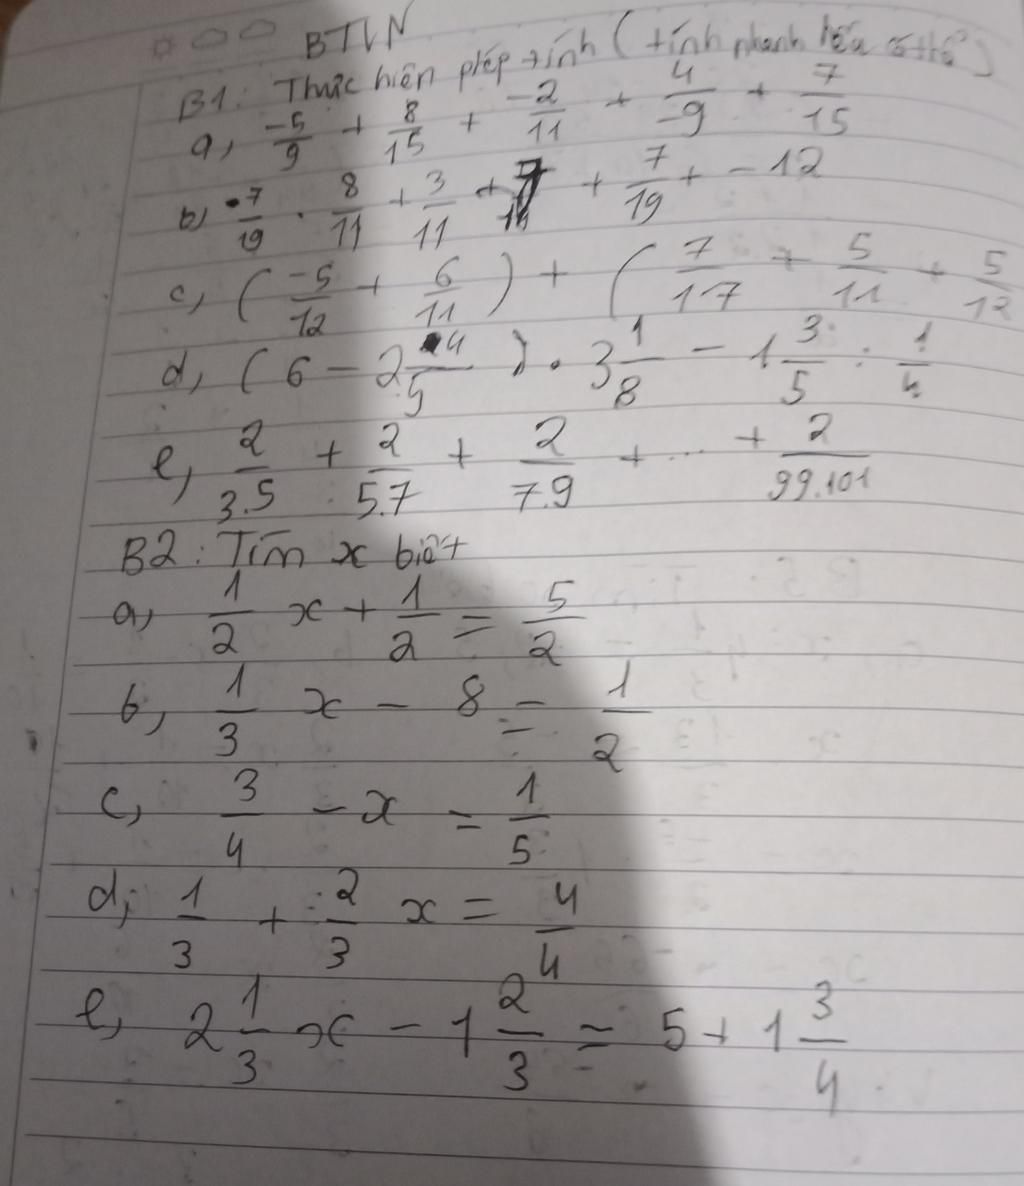 BTVN
B1: Thực hiện phép tính (tính nhanh nếu có thể)
a, -5/9 + 8/15 + -2/11 + 4/-9 + 7/15
b) 7/19 . 8/11 + 3/11 + 7/19 + -12
c, (-5/12 + 6/11) + (7/17 + 5/11 + 5/12
d, (6 - 2 4/5) . 3 1/8 - 1 3/5 : 1/4
e, 2/3.5 + 2/5.7 + 2/7.9 + ... + 2/99.101
B2: Tìm x biết
a, 1/2 x + 1/2 = 5/2
b, 1/3 x - 8 = 1/2
c, 3/4 - x = 1/5
d, 1/3 + 2/3 x = 4/4
e, 2 1/3 x - 1 2/3 = 5 + 1 3/4